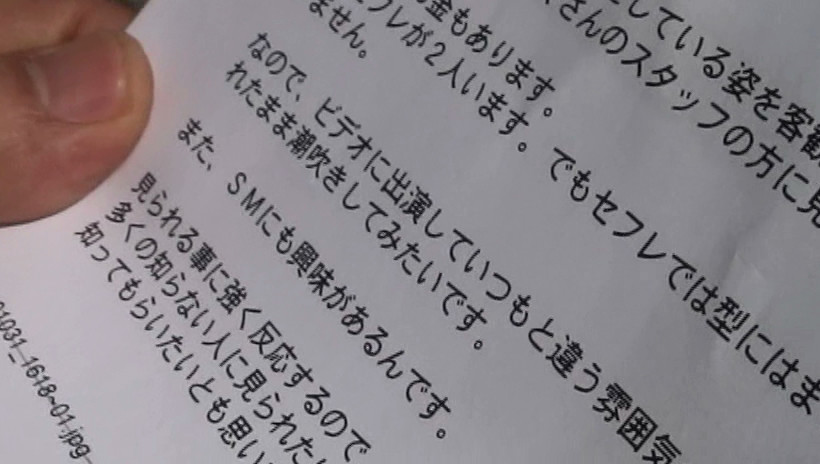 している姿を客観
さんのスタッフの方に見
金もあります。
フレが2人います。でもセフレでは型にはま
ません。
なので、ビデオに出演していつもと違う雰囲気
れたまま潮吹きしてみたいです。
また、SMにも興味があるんです。
見られる事に強く反応するので
多くの知らない人に見られた
知ってもらいたいとも思い
01031_1618~01.jpg